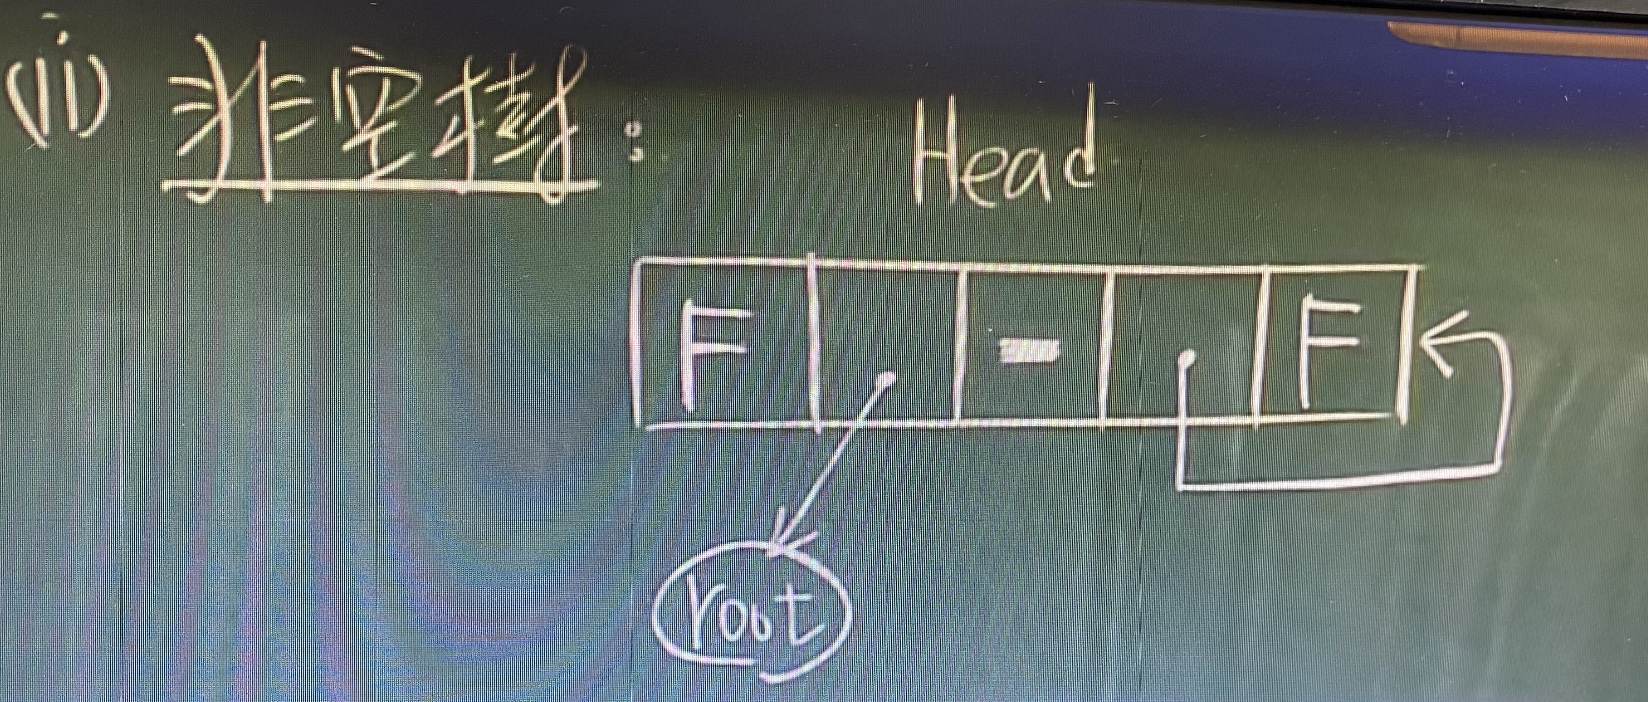 (ii) 非空樹：
Head
F - F
root